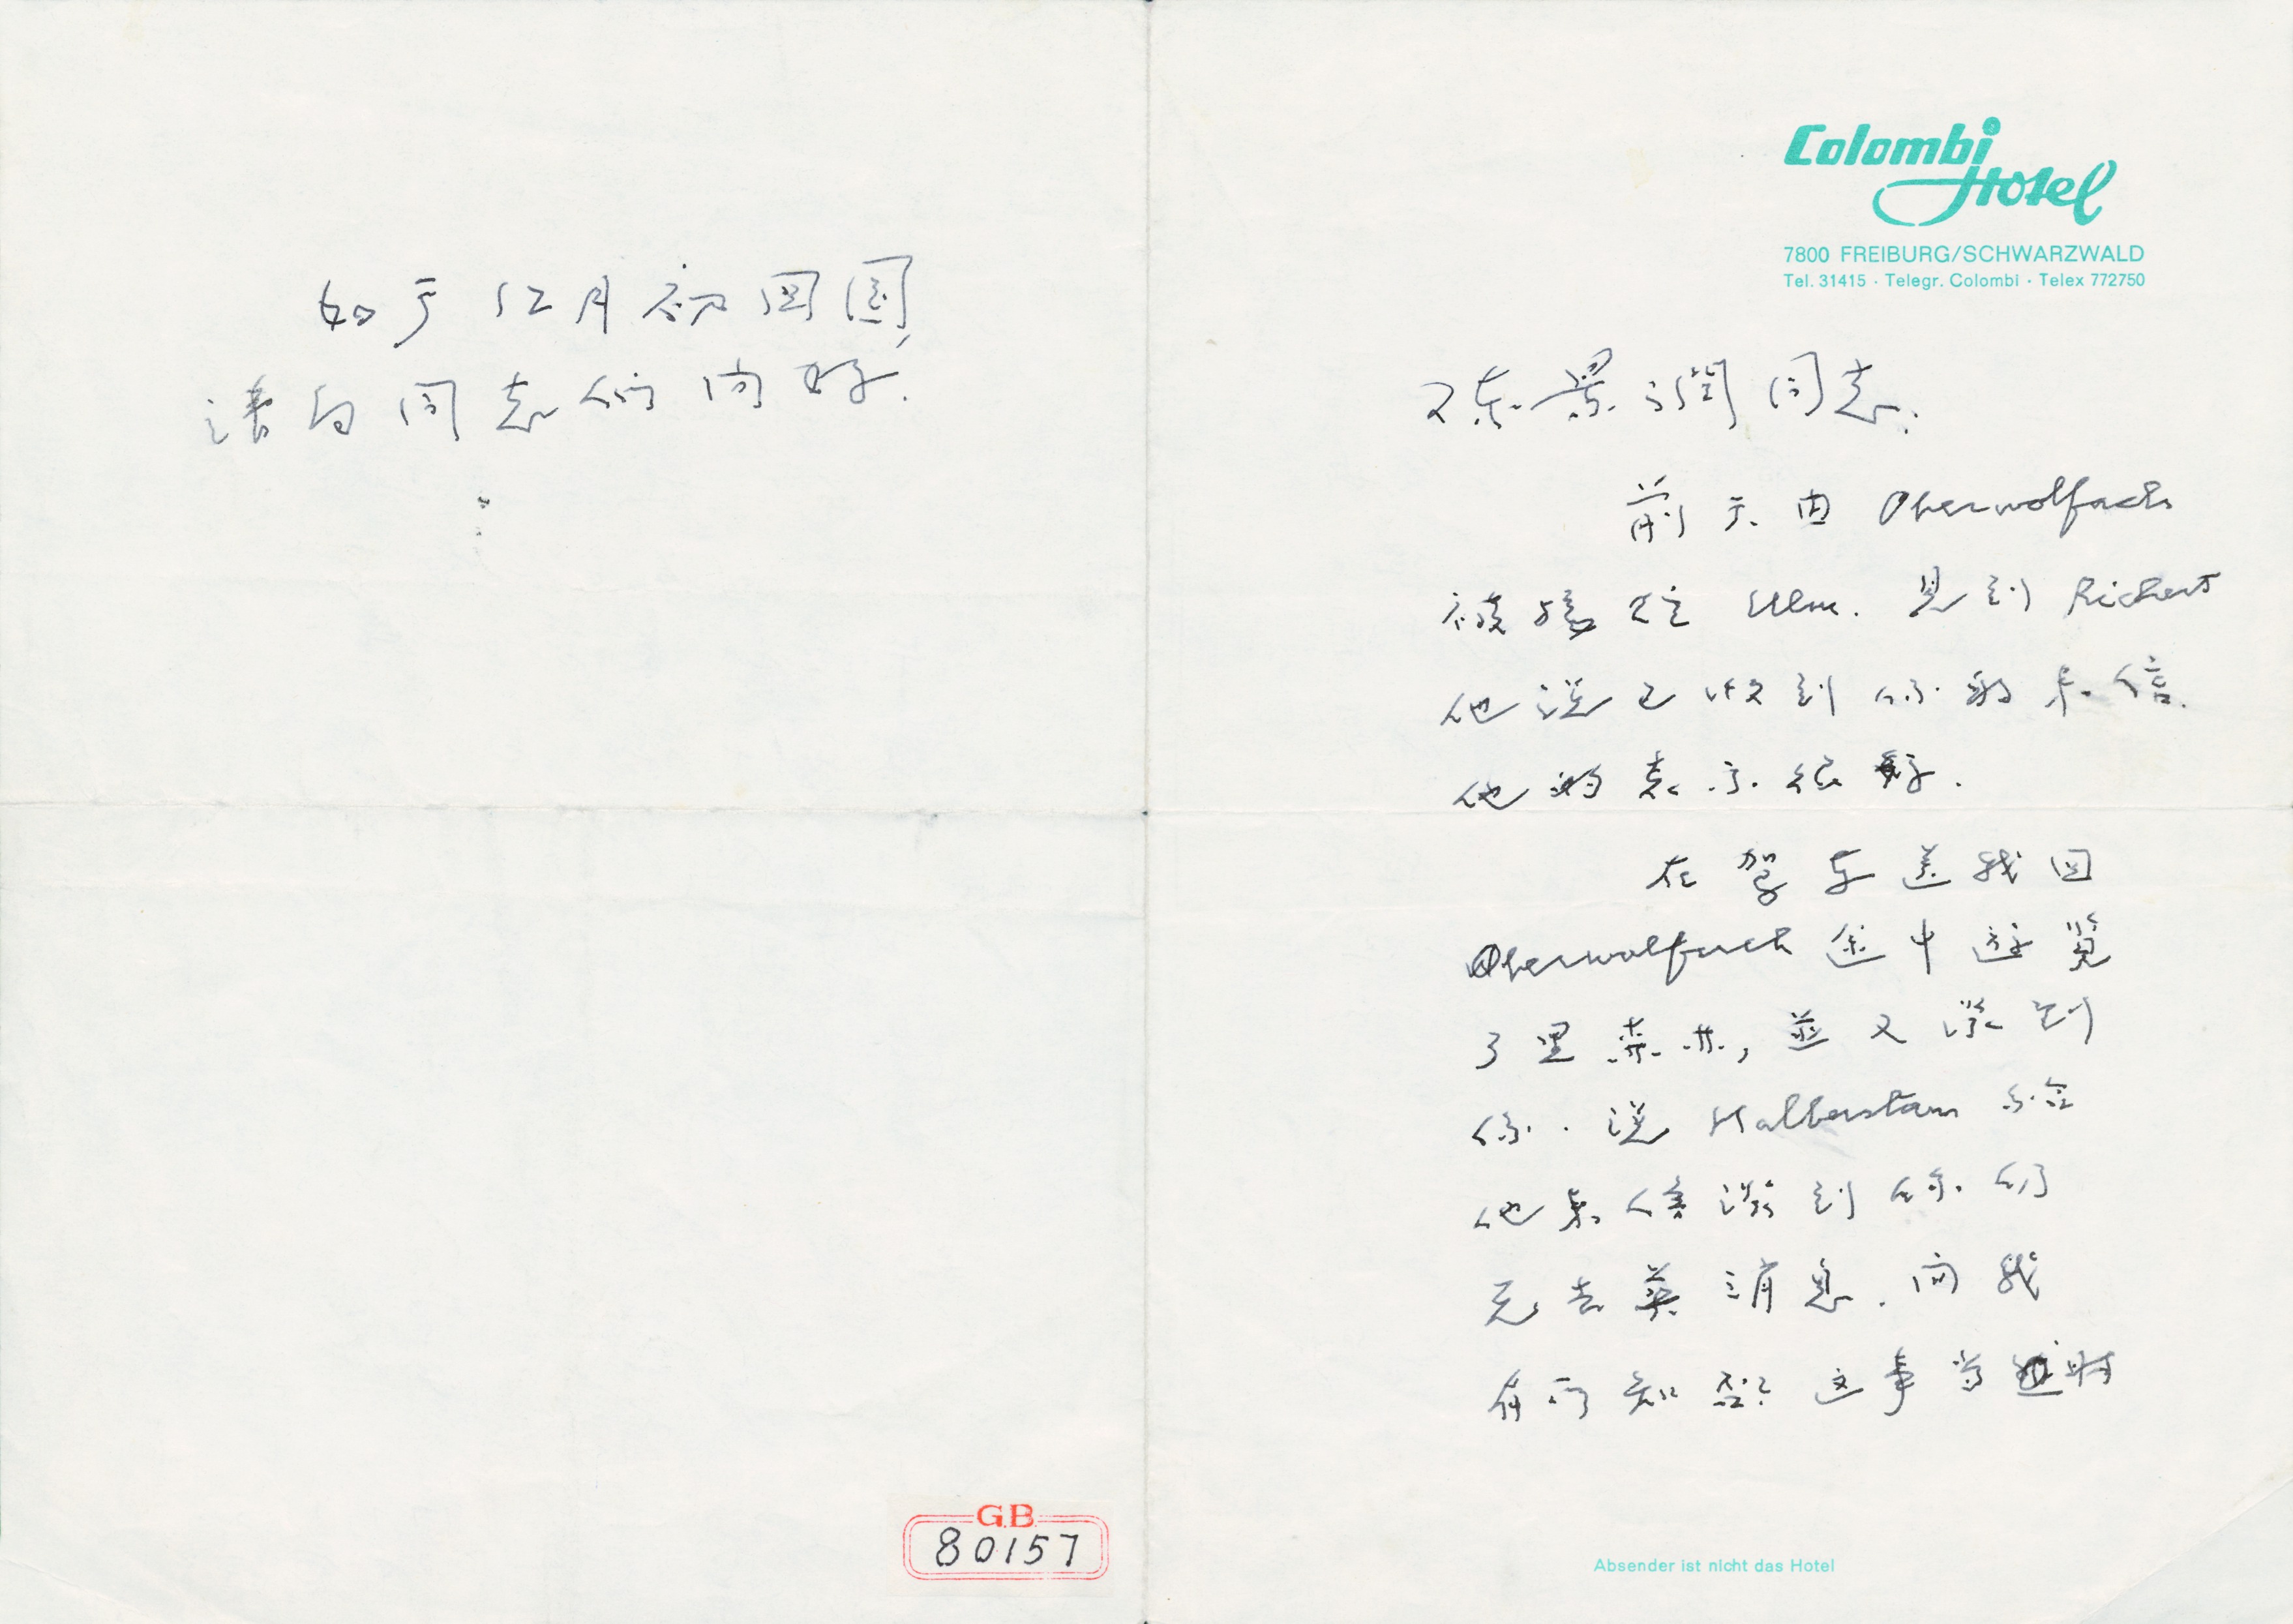 Colombi
Hotel
7800 FREIBURG/SCHWARZWALD
Tel. 31415 · Telegr. Colombi · Telex 772750
陈景润同志.
前天由 Oberwolfach
被 往 Ulm. 见到 Richert
他说已收到你的来信.
他的表示很好.
在驾车送我回
Oberwolfach 途中游览
了黑森林, 并又谈到
你. 说 Halberstam 给
他来信谈到你们
无去英消息. 问我
有所知否? 这事当时
Absender ist nicht das Hotel
如于12月初回国,
请向同志们问好.
G.B.
80157